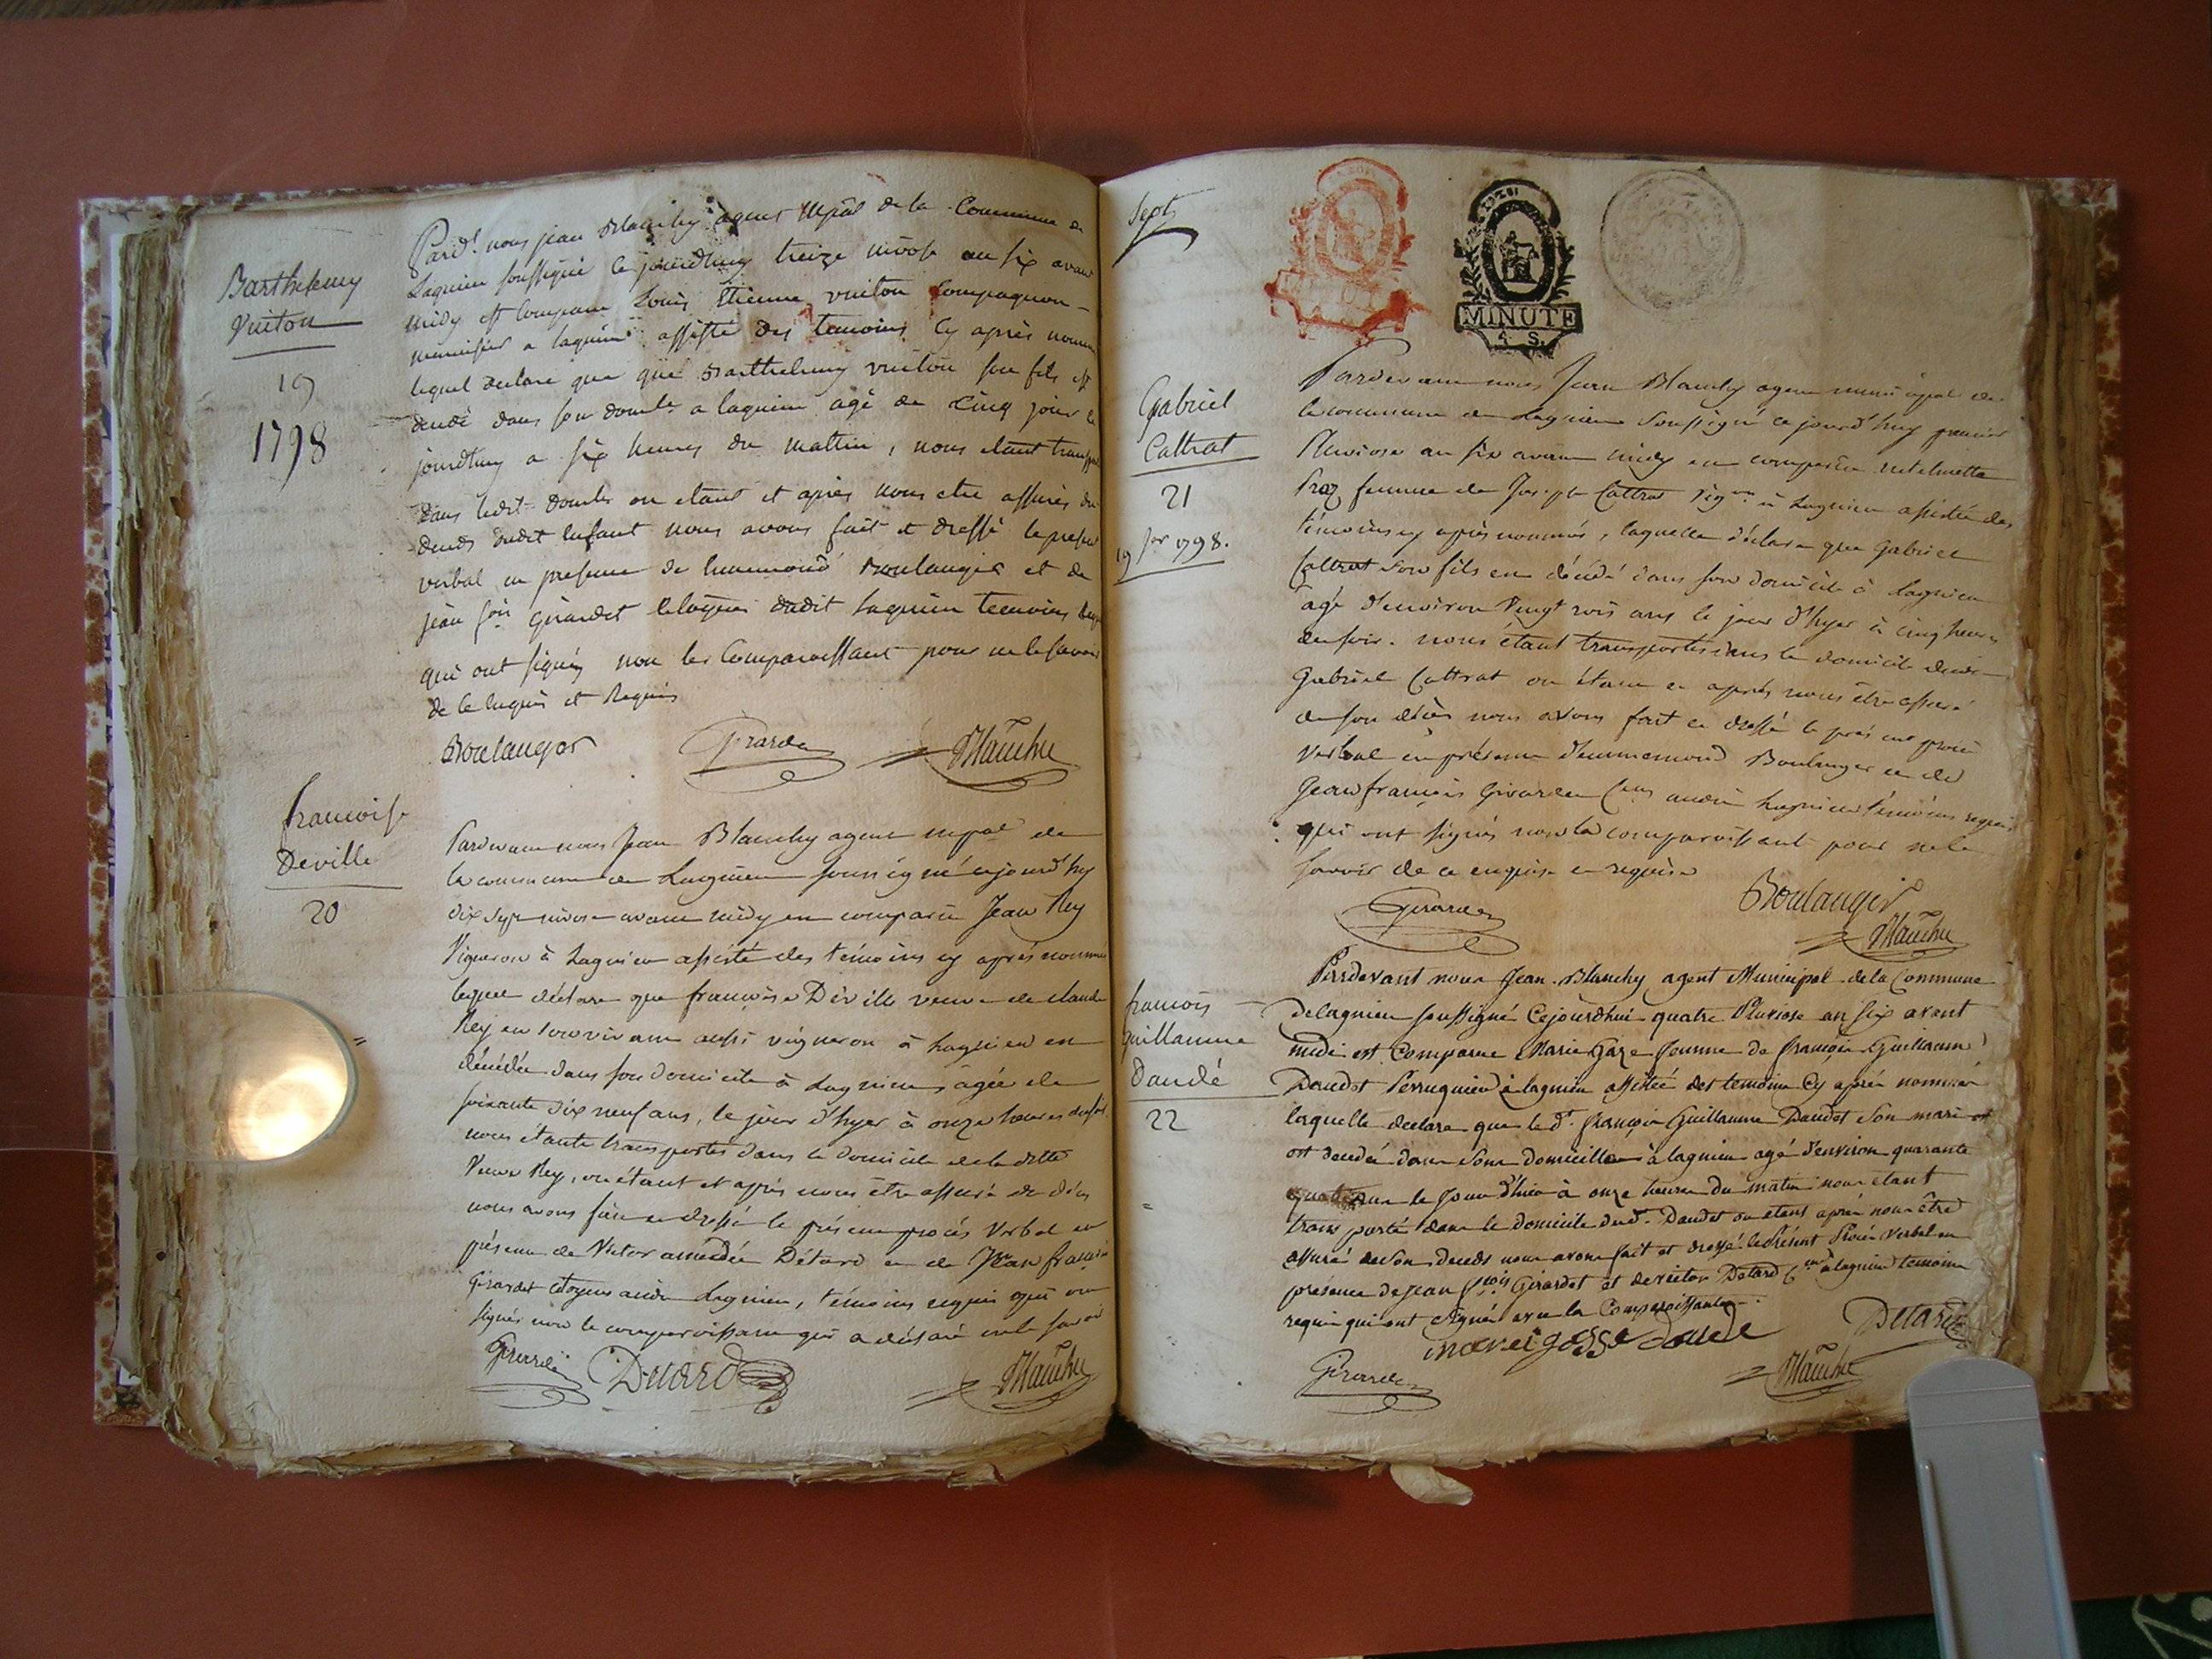 Barthelemy
Vuiton
19
1798
Pard.t nous jean Blanchy agent mpal de la Commune de
Lagnieu soussigné ce jourdhuy treize nivose an six avant
midy est Comparu Louis Etienne vuiton Compagnon
menuisier a lagnieu assisté des temoins Cy après nommé
lequel declare que que Barthelemy vuiton son fils est
decedé dans son domile a lagnieu agé de Cinq jour ce
jourdhuy a six heures du mattin, nous etant transporté
dans ledit domile ou etant et après nous etre assurés du
deceds dudit Enfant nous avons fait et dressé le present
verbal en presence de Boulanger et de
jean fois Girardet Citoyens dudit Lagnieu temoins Requis
qui ont signés non les Comparoissant pour ne le savoir
de ce Enquis et Requis
Boulanger Girardet Blanchy
francoise
Deville
20
Pardevant nous Jean Blanchy agent mpal de
la commune de Lagnieu soussigné cejourd'huy
dix sept nivose avant midy est comparu Jean Rey
Vigneron à Lagnieu assisté des témoins cy après nommé
lequel déclare que françoise Déville veuve de claude
Rey en son vivant aussi vigneron à Lagnieu est
décédée dans son domicile à Lagnieu, âgée de
soixante dix neuf ans, le jour d'hyer à onze heures du soir
nous étants transportés dans le domicile de la ditte
Veuve Rey, ou étant et après nous être assuré du décès
nous avons fait et dressé le présent procès verbal en
présence de Victor amédée Détard et de Jean françois
Girardet citoyens audit Lagnieu, témoins requis qui ont
signés non le comparoissant qui a déclaré ne le savoir
Girardet Detard Blanchy
Sept
MINUTE
4 S.
Gabriel
Cattrat
21
19 1798.
Pardevant nous Jean Blanchy agent municipal de
la commune de Lagnieu soussigné ce jourd'huy premier
Pluviose an six avant midy est comparue
femme de Joseph Cattrat vig.on à Lagnieu assistée des
témoins cy après nommés, laquelle déclare que Gabriel
Cattrat son fils est décédé dans son domicile à Lagnieu
agé d'environ Vingt trois ans le jour d'hyer à cinq heures
du soir. nous étant transportés dans le domicile dudit
Gabriel Cattrat ou étant et après nous être assuré
de son décès nous avons fait et dressé le présent procès
verbal en présence d'ennemond Boulanger et de
Jean françois Girardet audit Lagnieu témoins requis
qui ont signés non la comparoissant pour ne le
savoir de ce enquise et requise
Girardet Boulanger
Blanchy
francois
guillaume
Daudé
22
Pardevant nous Jean Blanchy agent Municipal de la Commune
de lagnieu soussigné Cejourdhui quatre Pluviose an six avant
midi est Comparue Marie femme de françois Guillaume
Daudet Perruquier à lagnieu assistée des temoins Cy après nommés
laquelle declare que le d.t françois Guillaume Daudet son mari est
est decedé dans son domicille à lagnieu agé d'environ quarante
quatre ans le Jour d'hier à onze heures du matin nous etant
transporté dans le domicile dud.t Daudet ou etant après nous être
assuré de son deceds nous avons fait et dressé le Présent Procès verbal en
presence de jean fçois Girardet et de victor Detard C.ens à lagnieu temoins
requis qui ont signé avec la Comparoissante.
Detard
Girardet Blanchy